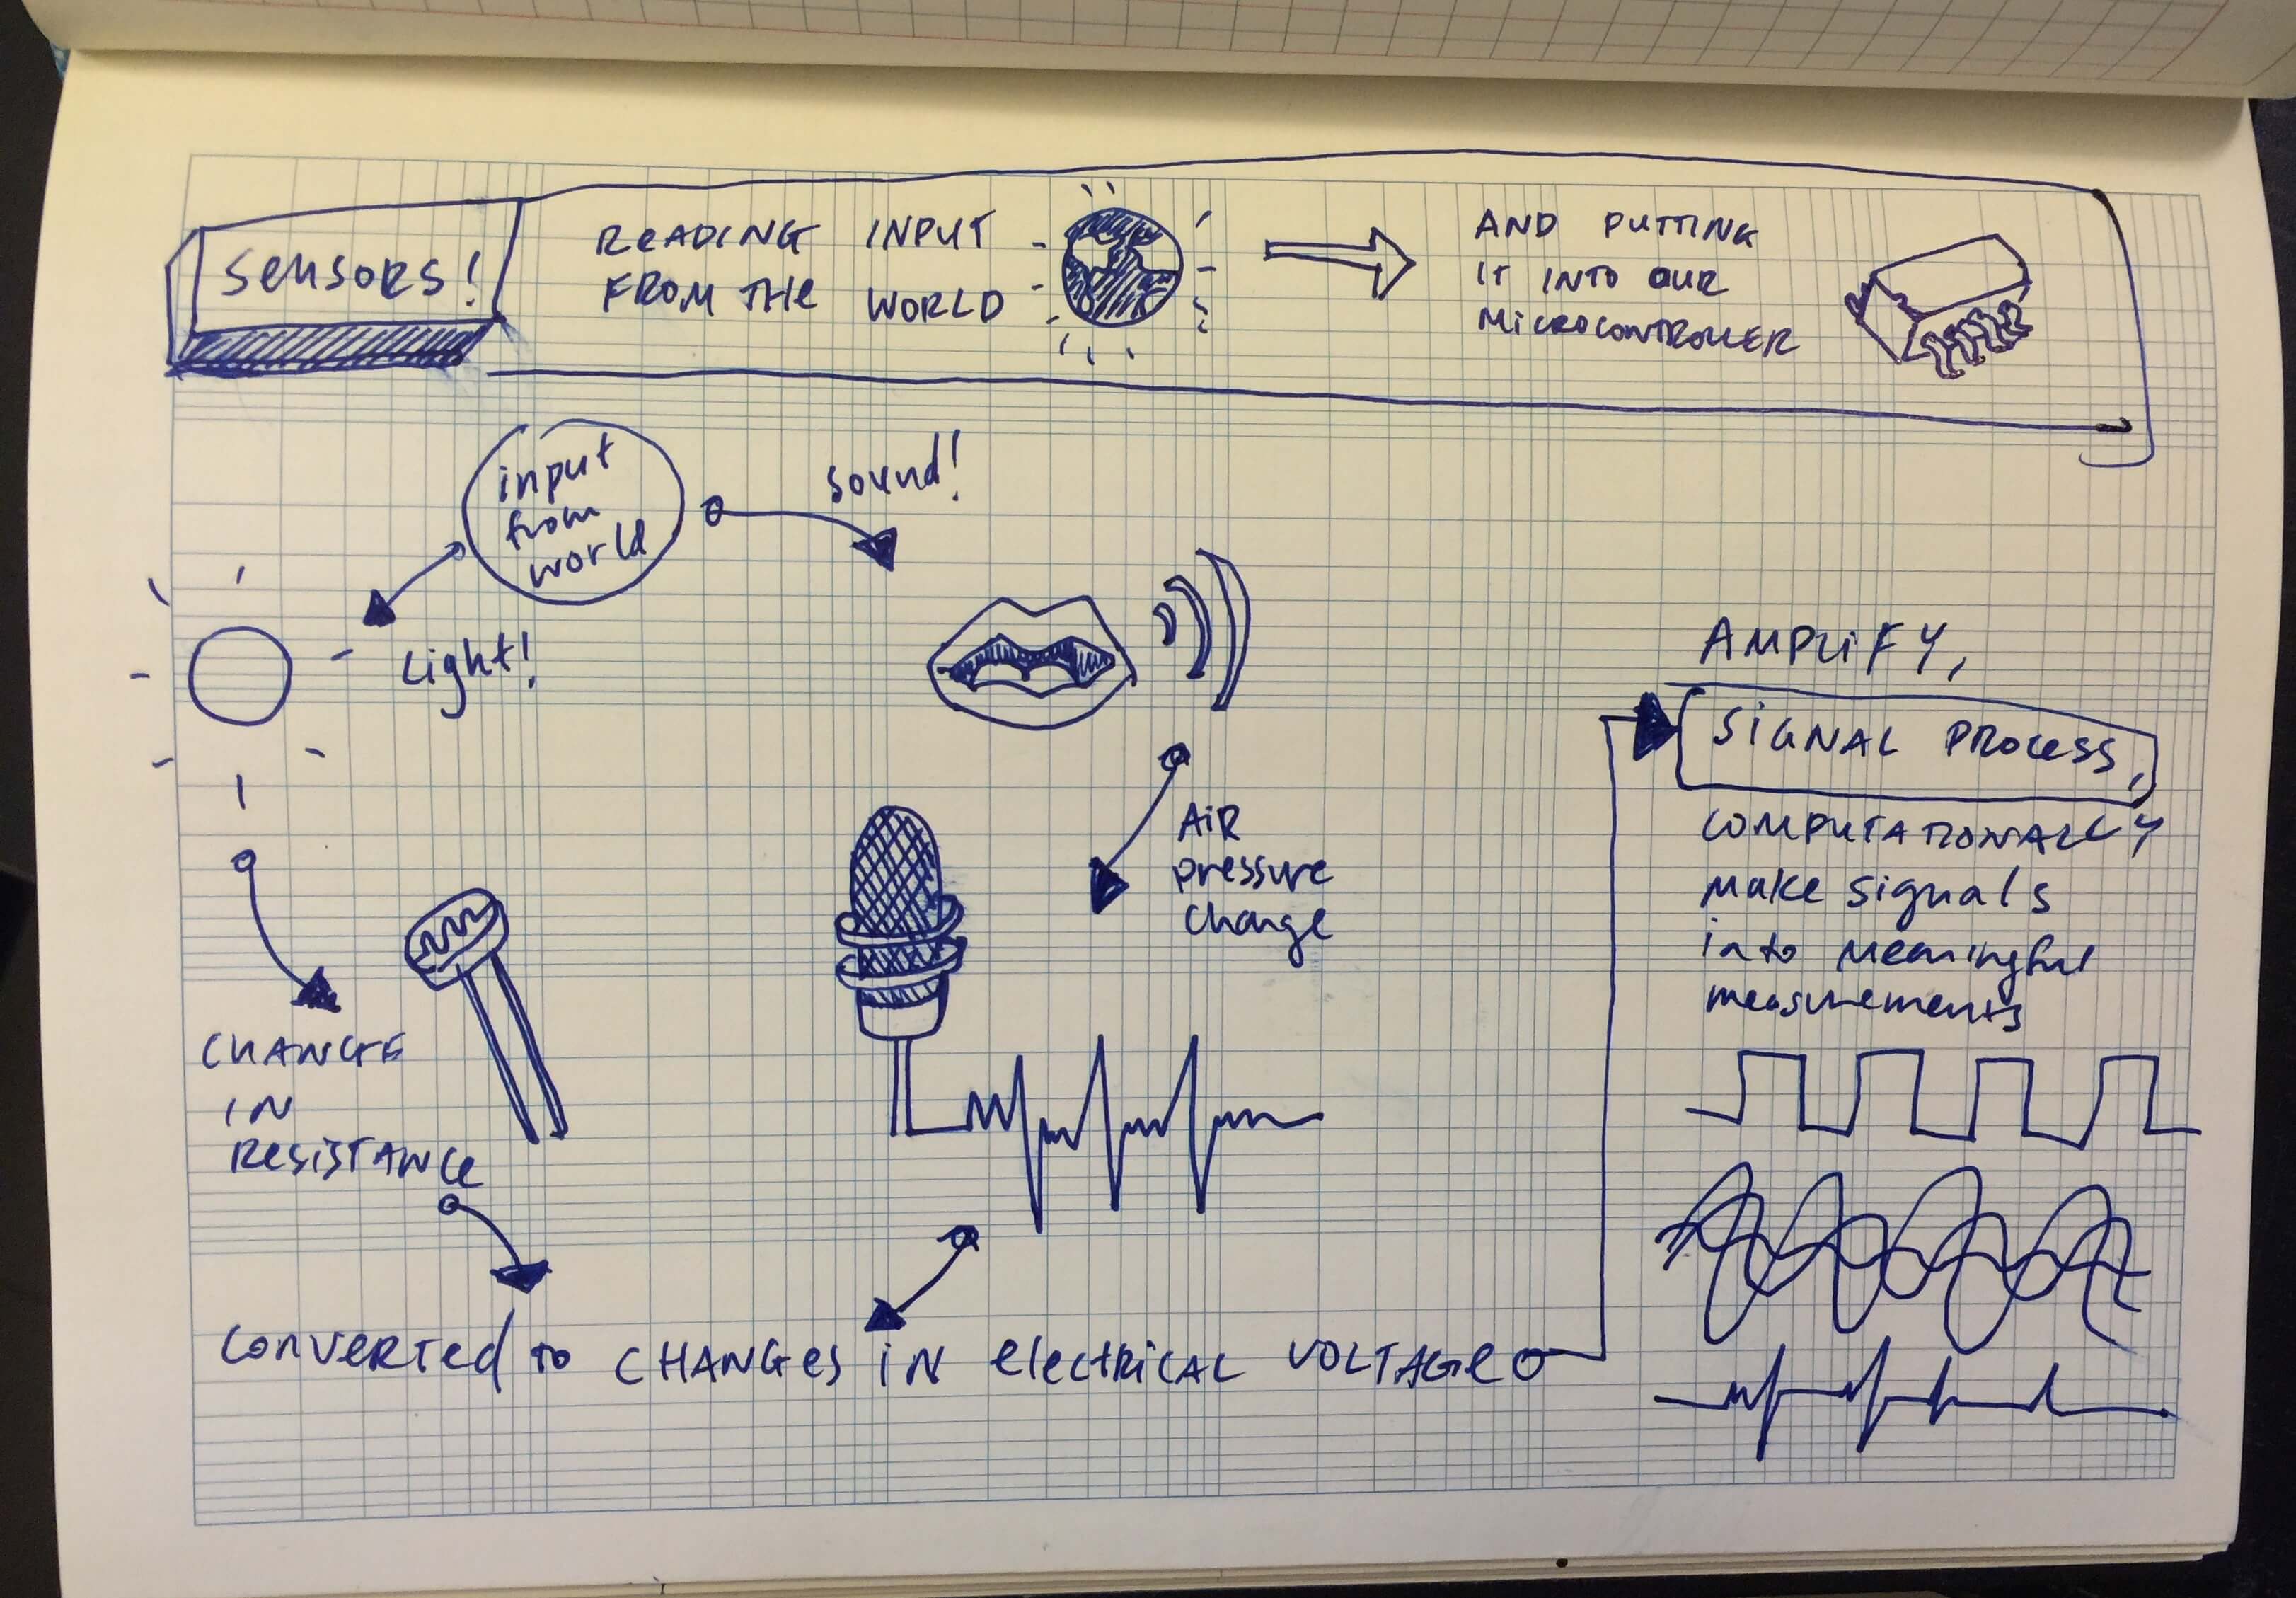 Sensors!
READING INPUT
FROM THE WORLD
AND PUTTING
IT INTO OUR
MICROCONTROLLER
input
from
world
sound!
Light!
AIR
pressure
change
CHANGE
IN
RESISTANCE
CONVERTED TO CHANGES IN ELECTRICAL VOLTAGE
AMPLIFY,
SIGNAL PROCESS,
COMPUTATIONALLY
make signals
into meaningful
measurements